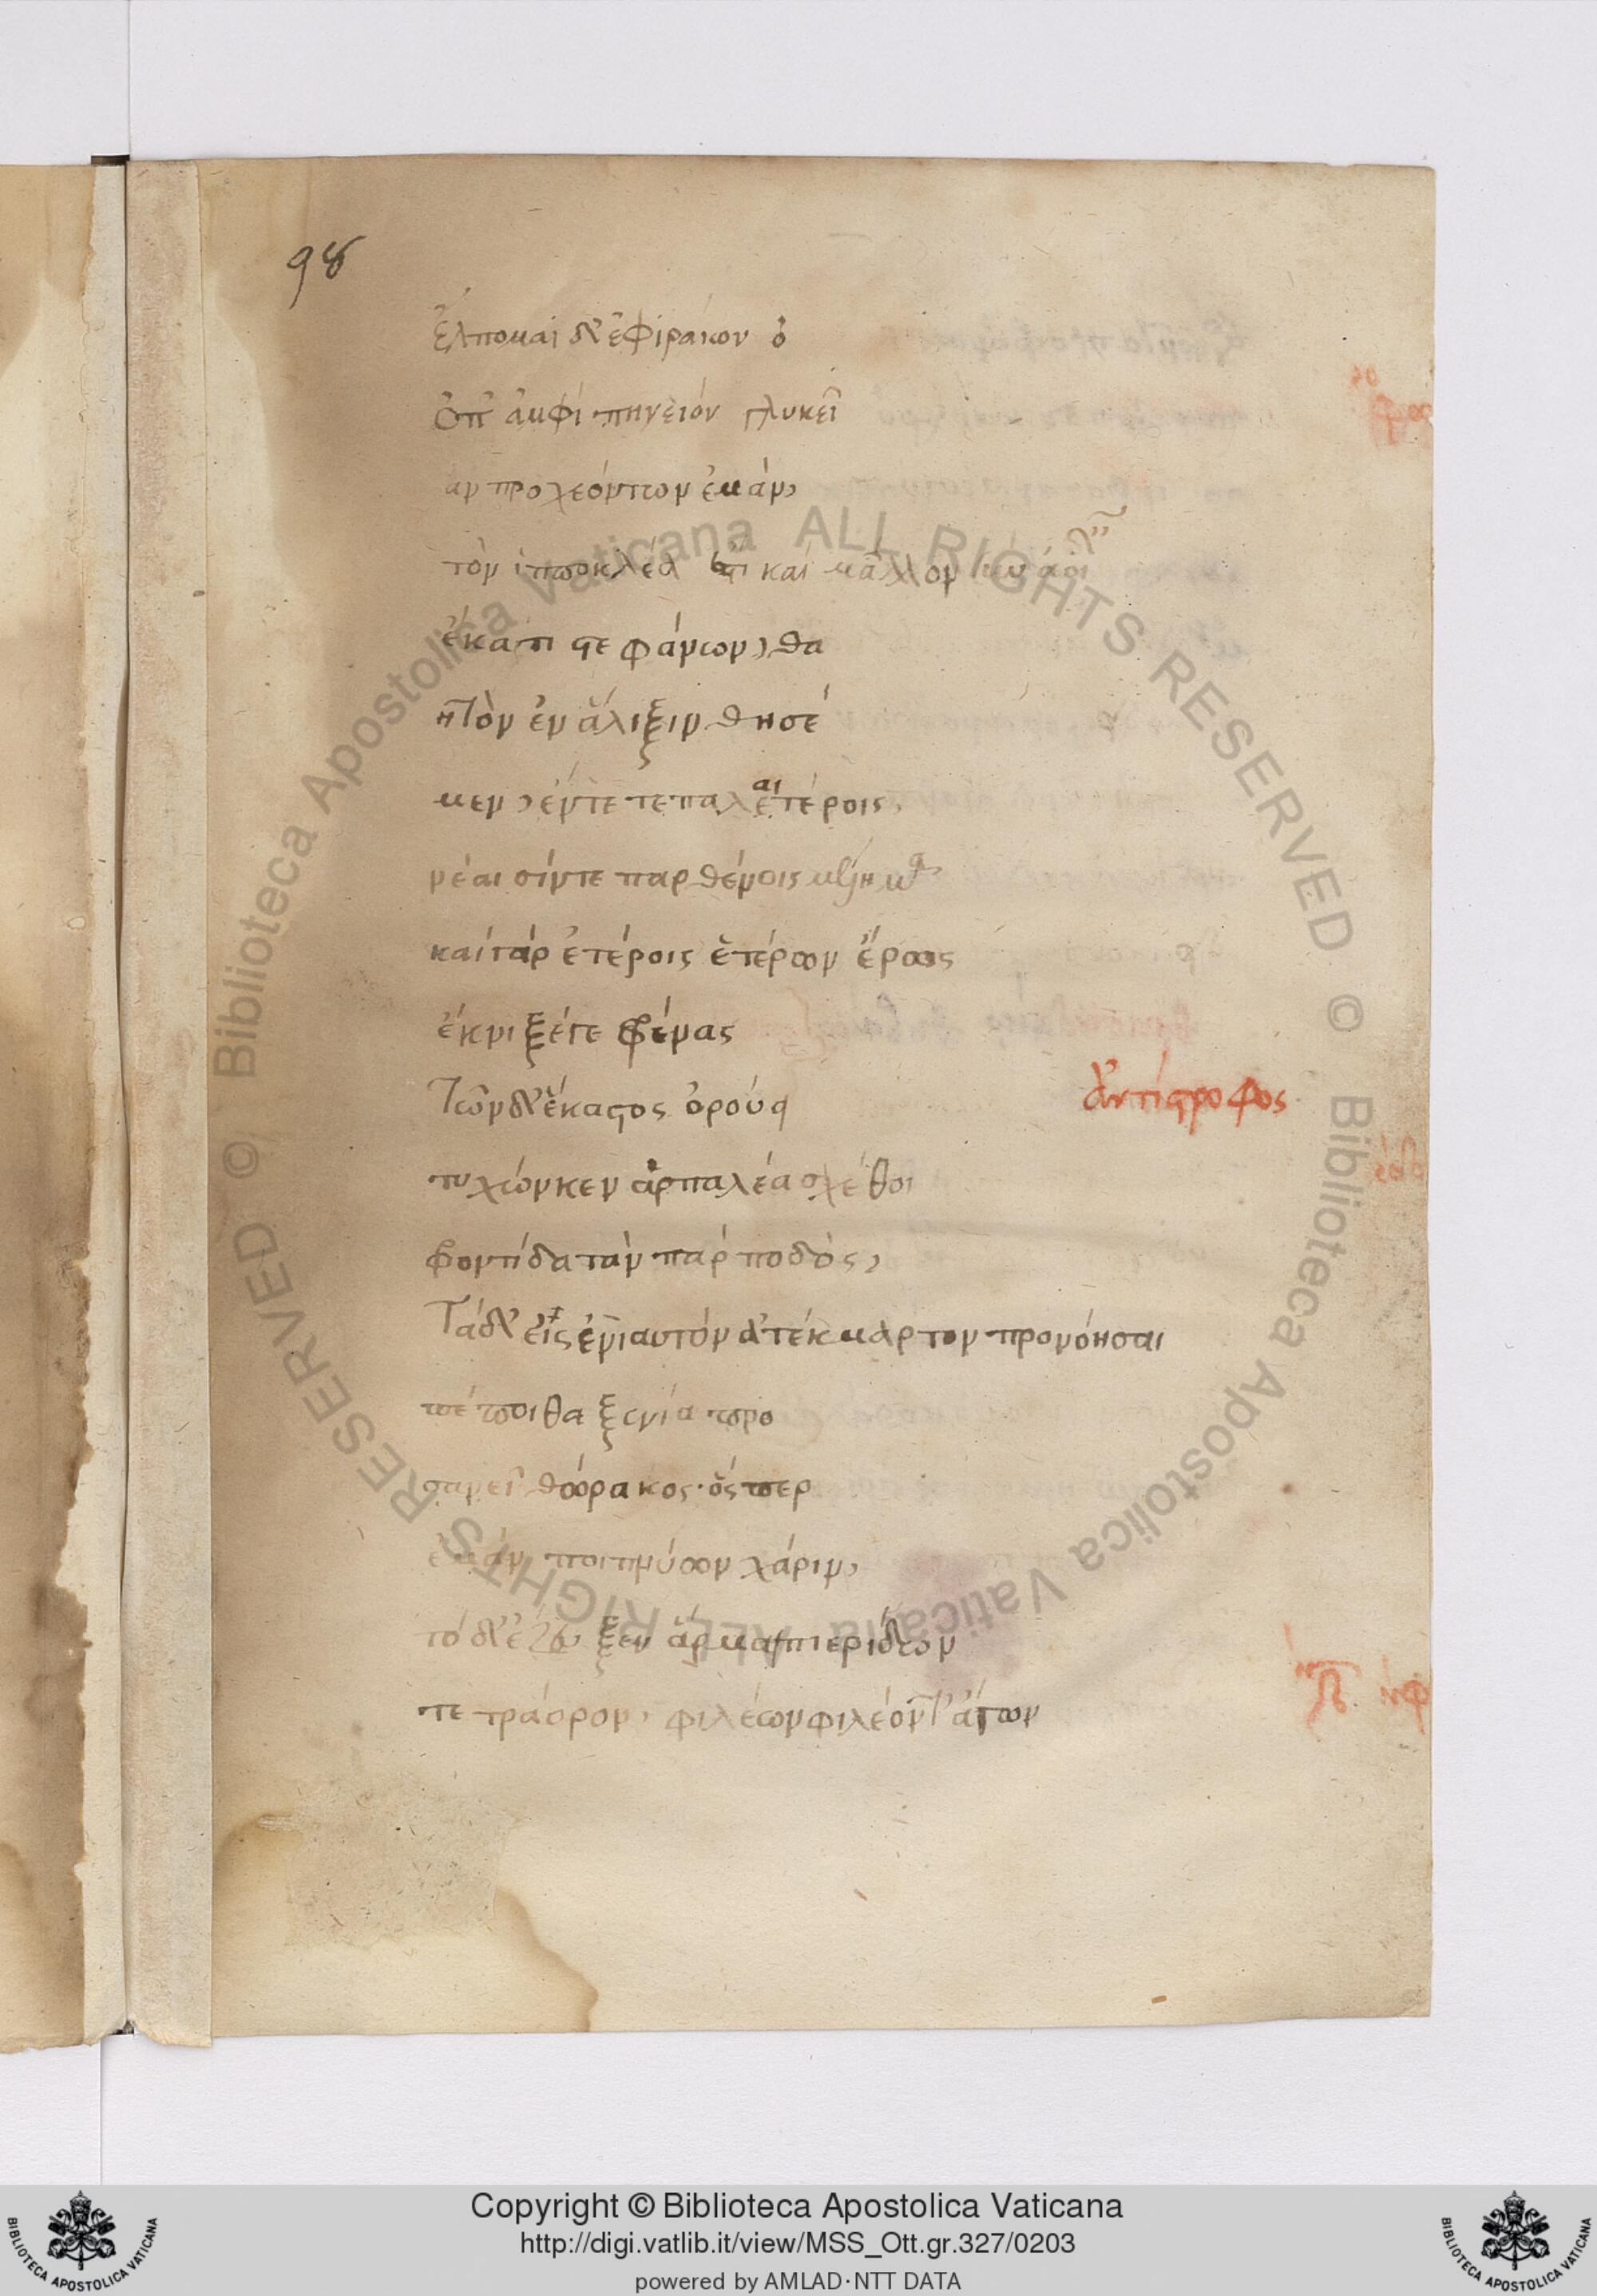 98
ἔλπομαι δ' ἐφιραίων ὁ
ὄπ' ἀμφὶ πηνειὸν γλυκεῖ
αν προχεόντων ἐμὰν,
τὸν ἱπποκλέα ἔτι καὶ μᾶλλον σὺν ἀοιδαῖς
ἕκατι στεφάνων, θα
ητὸν ἐν ἅλιξιν θησέ
μεν, ἔντε τε παλαιτέροις,
νέαισίν τε παρθένοις μέλημα.
καὶ γὰρ ἑτέροις ἑτέρων ἔρως
ἔκνιξέ γε φρένας
Τῶν δ' ἕκαστος ὀρούει
ἀντίστροφος
τυχών κεν ἁρπαλέα σχέθοι
φροντίδα τὰν παρ ποδός,
Τὰ δ' εἰς ἐνιαυτὸν ἀτέκμαρτον προνοῆσαι
πέποιθα ξενία προ
σανεῖ θώρακος· ὅς περ
ἐμὰν ποιπνύων χάριν,
τόδ' ἔζευξεν ἅρμα πιερίδων
τετράορον, φιλέων φιλέοντ' ἄγων
Copyright © Biblioteca Apostolica Vaticana
http://digi.vatlib.it/view/MSS_Ott.gr.327/0203
powered by AMLAD·NTT DATA
BIBLIOTECA APOSTOLICA VATICANA
BIBLIOTECA APOSTOLICA VATICANA
Biblioteca Apostolica Vaticana ALL RIGHTS RESERVED ©
Biblioteca Apostolica Vaticana ALL RIGHTS RESERVED ©